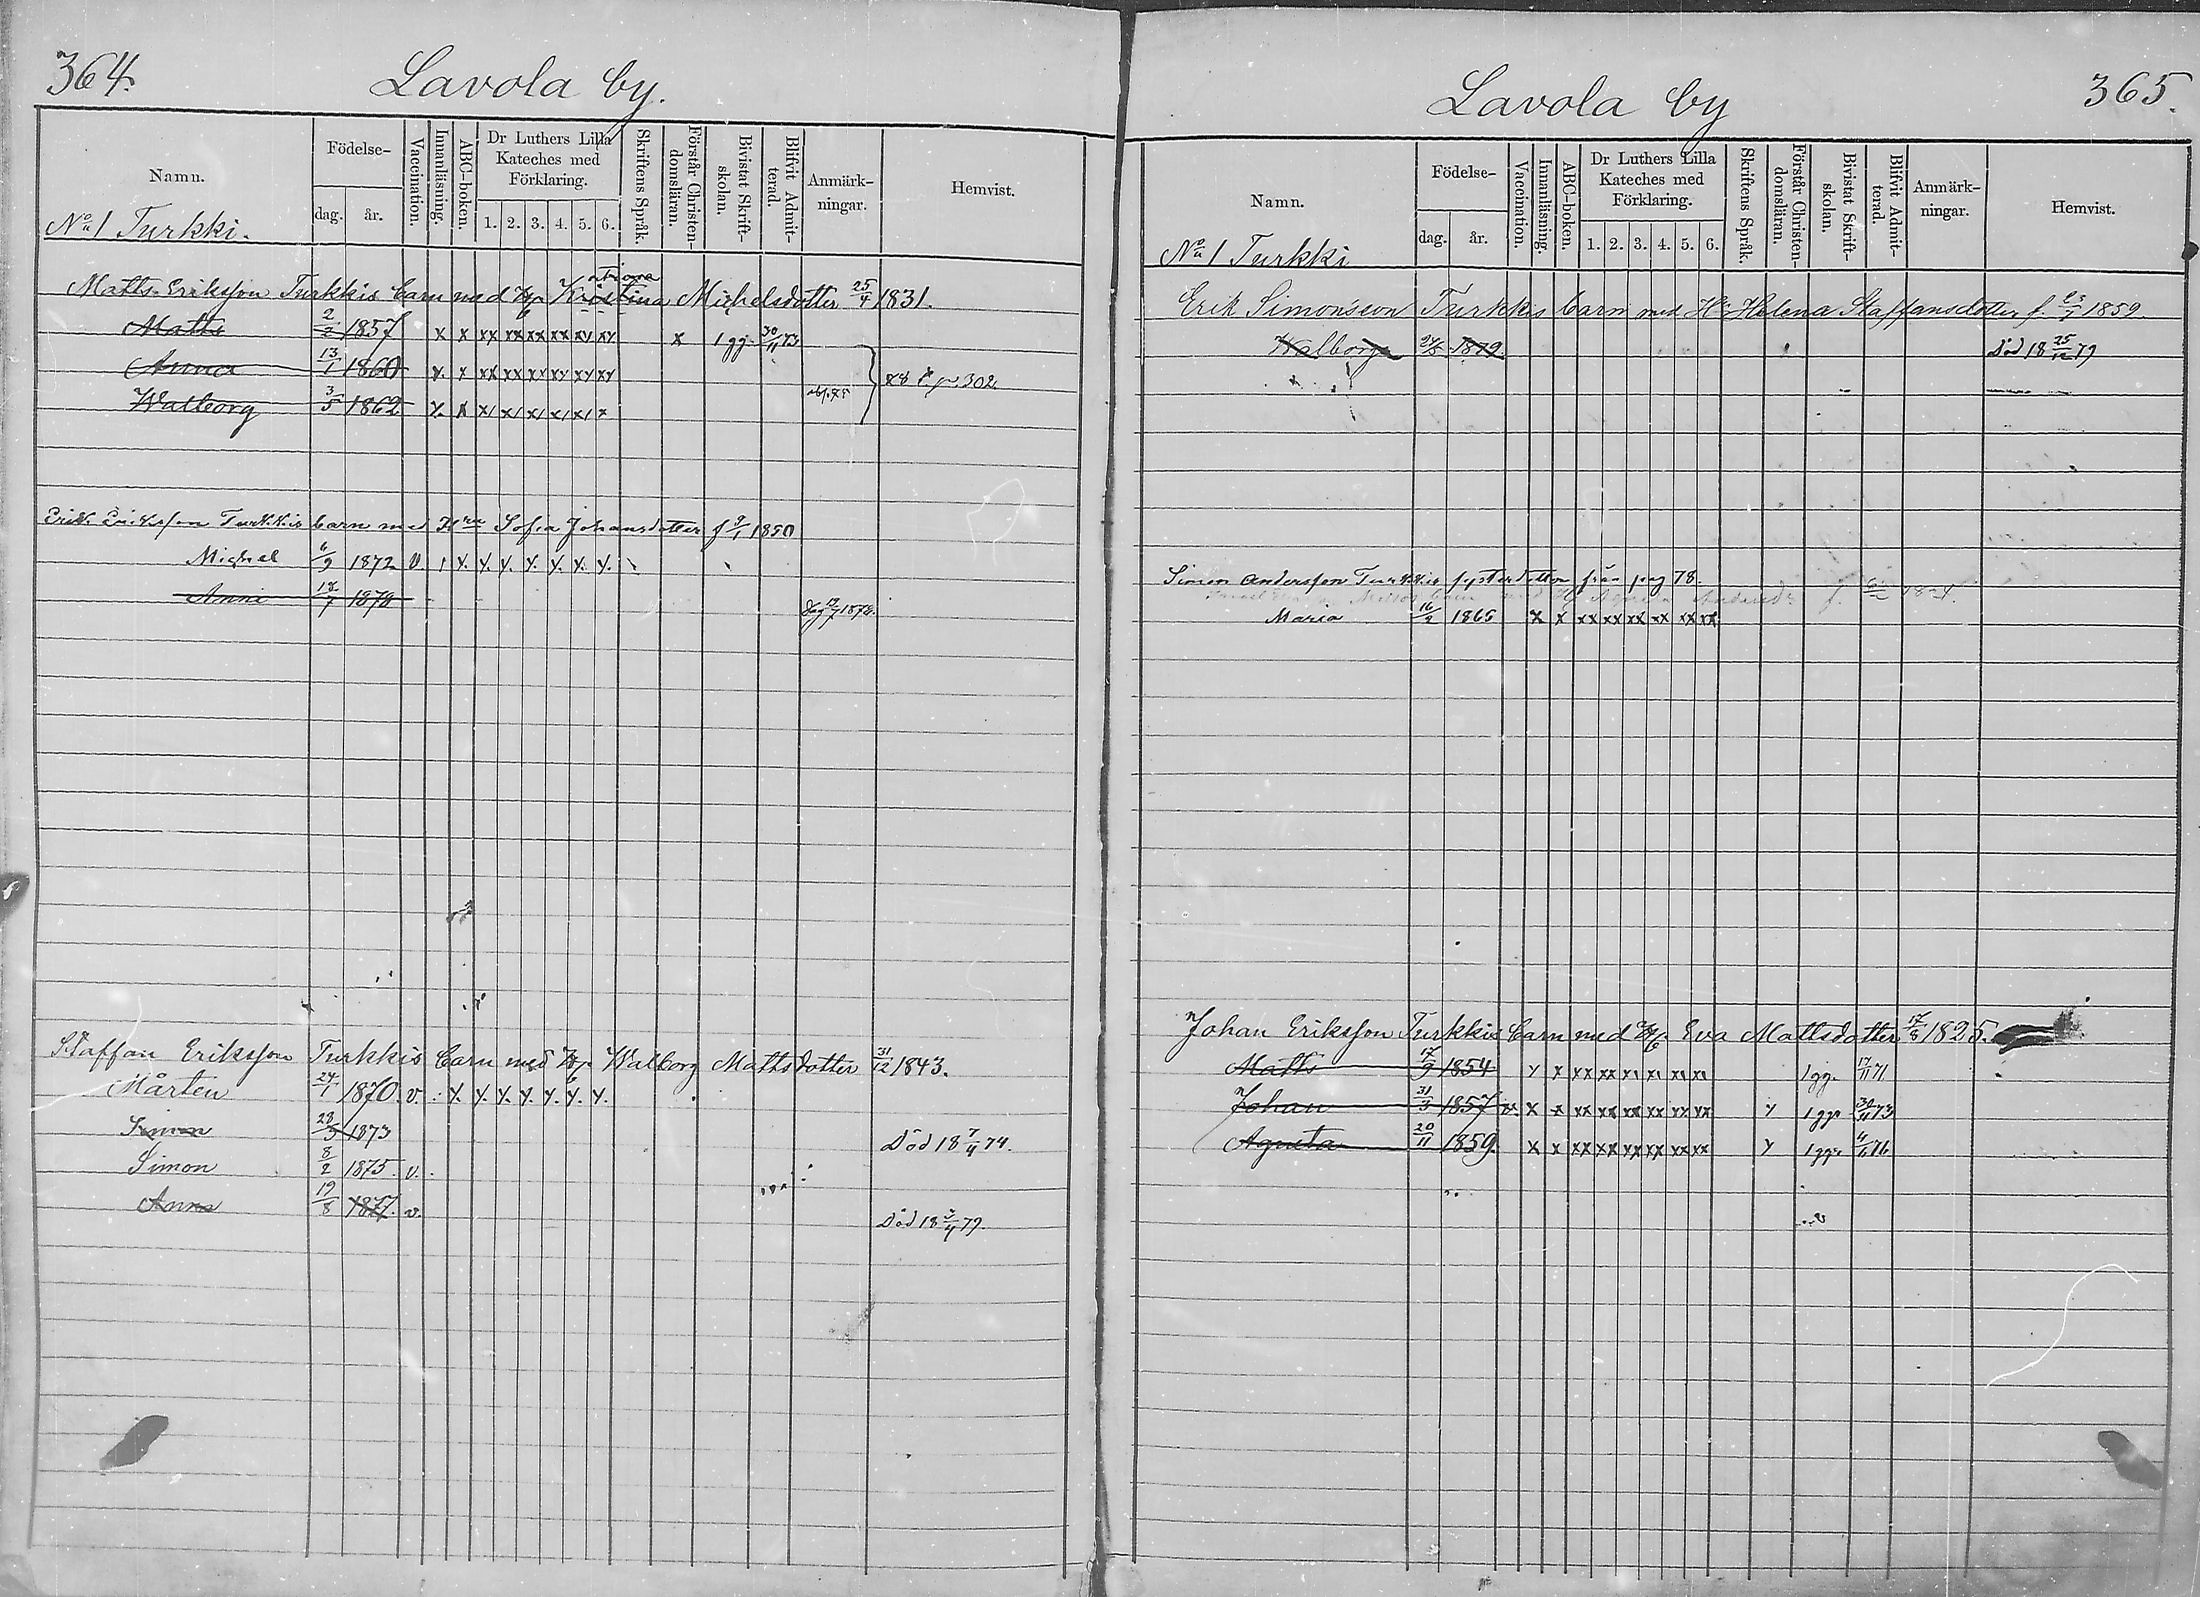 364.
Lavola by.
Namn.
Födelse-
dag. år.
Vaccination.
Innanläsning.
ABC-boken.
Dr Luthers Lilla Kateches med Förklaring.
1. 2. 3. 4. 5. 6.
Skriftens Språk.
Förstår Christendomsläran.
Bivistat Skriftskolan.
Blifvit Admitterad.
Anmärkningar.
Hemvist.
No 1 Turkki.
Matts Eriksson Turkkis barn med H. Kristina Michelsdotter 25/4 1831.
Matts 2/2 1857 x x xx xx xx xx xy xy x 1 gg. 30/11 73
Anna 13/1 1860 x x xx xx xx xx xy xy p. 302.
Walborg 3/5 1862 x x x/ x/ x/ x/ x/ x
Erik Eriksson Turkkis barn med Hru Sofia Johansdotter f 9/1 1850
Michel 6/9 1872 v. y. y. y. y. y. y. y.
Anna 18/7 1878
Staffan Eriksson Turkkis barn med H. Walborg Mattsdotter 31/12 1843.
Mårten 24/1 1870. v. y. y. y. y. y. y. y.
Simon 28/5 1873 Död 18 7/4 74.
Simon 8/2 1875. v.
Anna 19/8 1877. v. Död 18 3/4 79.
Lavola by
365.
Namn.
Födelse-
dag. år.
Vaccination.
Innanläsning.
ABC-boken.
Dr Luthers Lilla Kateches med Förklaring.
1. 2. 3. 4. 5. 6.
Skriftens Språk.
Förstår Christendomsläran.
Bivistat Skriftskolan.
Blifvit Admitterad.
Anmärkningar.
Hemvist.
No 1 Turkki
Erik Simonsson Turkkis barn med H. Helena Staffansdotter f. 1859.
Walborg 1879. Död 18 25/12 79
Simon Andersson Turkkis systerdotter från pag 78.
Maria 16/2 1865 x x xx xx xx xx xx xx
Johan Eriksson Turkkis barn med H. Eva Mattsdotter 17/8 1825.
Matts 17/9 1854 y x xx xx xx xx xx xx 1 gg. 17/11 71
Johan 31/3 1857 v. x x xx xx xx xx xx xx y 1 ggr 30/11 73
Agneta 20/11 1859. x x xx xx xx xx xx xx y 1 ggr 76